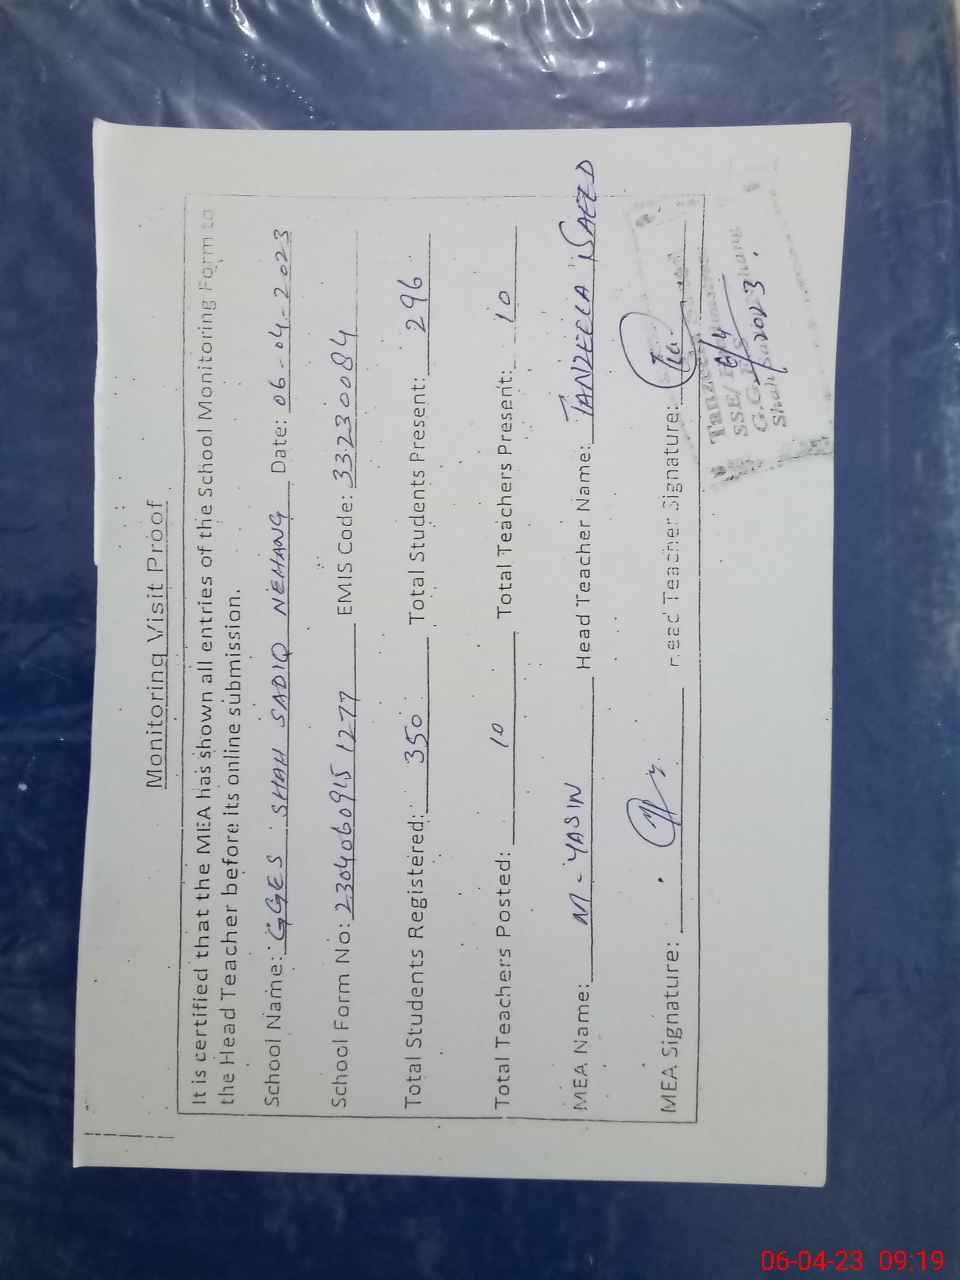 Monitoring Visit Proof
It is certified that the MEA has shown all entries of the School Monitoring Form to
the Head Teacher before its online submission.
School Name: GGES SHAH SADIQ NEHANG Date: 06-04-2023
School Form No: 23040609151277 EMIS Code: 33230084
Total Students Registered: 350 Total Students Present: 296
Total Teachers Posted: 10 Total Teachers Present: 10
MEA Name: M-YASIN Head Teacher Name: TANZEELA SAEED
MEA Signature: Head Teacher Signature:
SSE/
G.G.
Shah
6/4
2023
06-04-23 09:19